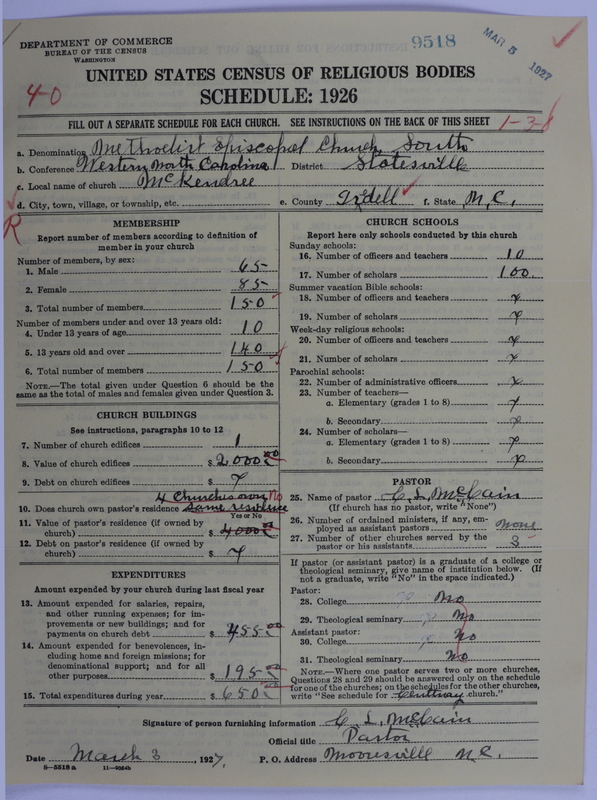 DEPARTMENT OF COMMERCE
BUREAU OF THE CENSUS
WASHINGTON
9518
MAR 5 1927
UNITED STATES CENSUS OF RELIGIOUS BODIES
SCHEDULE: 1926
4-0
FILL OUT A SEPARATE SCHEDULE FOR EACH CHURCH. SEE INSTRUCTIONS ON THE BACK OF THIS SHEET
1-3-8
a. Denomination Methodist Episcopal Church, South
b. Conference Western North Carolina District Statesville
c. Local name of church McKendree
d. City, town, village, or township, etc. e. County Iredell f. State N.C.
R
MEMBERSHIP
Report number of members according to definition of
member in your church
Number of members, by sex:
1. Male 65
2. Female 85
3. Total number of members 150
Number of members under and over 13 years old:
4. Under 13 years of age 10
5. 13 years old and over 140
6. Total number of members 150
NOTE.—The total given under Question 6 should be the
same as the total of males and females given under Question 3.
CHURCH BUILDINGS
See instructions, paragraphs 10 to 12
7. Number of church edifices 1
8. Value of church edifices $ 2000 00
9. Debt on church edifices $
4 Churches own No
10. Does church own pastor's residence same residence
Yes or No
11. Value of pastor's residence (if owned by
church) $ 4000 00
12. Debt on pastor's residence (if owned by
church) $
EXPENDITURES
Amount expended by your church during last fiscal year
13. Amount expended for salaries, repairs,
and other running expenses; for im-
provements or new buildings; and for
payments on church debt $ 455 00
14. Amount expended for benevolences, in-
cluding home and foreign missions; for
denominational support; and for all
other purposes $ 195 00
15. Total expenditures during year $ 650 00
CHURCH SCHOOLS
Report here only schools conducted by this church
Sunday schools:
16. Number of officers and teachers 10
17. Number of scholars 100
Summer vacation Bible schools:
18. Number of officers and teachers
19. Number of scholars
Week-day religious schools:
20. Number of officers and teachers
21. Number of scholars
Parochial schools:
22. Number of administrative officers
23. Number of teachers—
a. Elementary (grades 1 to 8)
b. Secondary
24. Number of scholars—
a. Elementary (grades 1 to 8)
b. Secondary
PASTOR
25. Name of pastor C. L. McCain
(If church has no pastor, write "None")
26. Number of ordained ministers, if any, em-
ployed as assistant pastors None
27. Number of other churches served by the
pastor or his assistants 3
If pastor (or assistant pastor) is a graduate of a college or
theological seminary, give name of institution below. (If
not a graduate, write "No" in the space indicated.)
Pastor:
28. College No
29. Theological seminary No
Assistant pastor:
30. College No
31. Theological seminary No
NOTE.—Where one pastor serves two or more churches,
Questions 28 and 29 should be answered only on the schedule
for one of the churches; on the schedules for the other churches,
write "See schedule for church."
Signature of person furnishing information C. L. McCain
Official title Pastor
Date March 3, 1927. P. O. Address Mooresville N.C.
8—5518 a 11—9364b